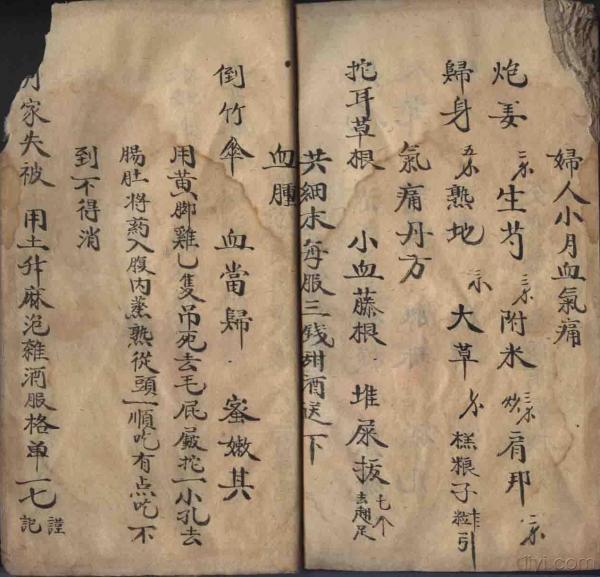 婦人小月血氣痛
炮姜 三ホ 生芍 三ホ 附米 三ホ 炒 肓邦 二ホ
歸身 五ホ 熟地 三ホ 大草 ホ 糕粮子 引
氣痛丹方
挖耳草根 小血藤根 堆屎拔 七个 去翅足
共細末每服三钱甜酒送下
血腫
倒竹傘 血當歸 蜜嫩其
用黄脚雞乚隻吊死去毛屁眼挖一小孔去
腸肚将药入腹内蒸熟從頭一順吃有点吃不
到不得消
家失被 用土升麻泡雜酒服格单一七 謹記
diyi.com